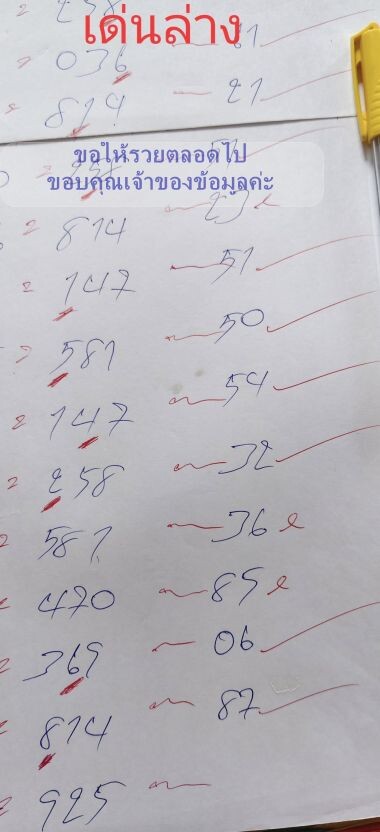 เด่นล่าง
= 258 ~ 61
= 036
= 814 ~ 21
ขอให้รวยตลอดไป
ขอบคุณเจ้าของข้อมูลค่ะ
= 814 ~ 23 e
= 147 ~ 51
= 581 ~ 50
= 147 ~ 54
= 258 ~ 32
= 581 ~ 36 e
= 470 ~ 85 e
= 369 ~ 06
= 814 ~ 87
= 925 ~